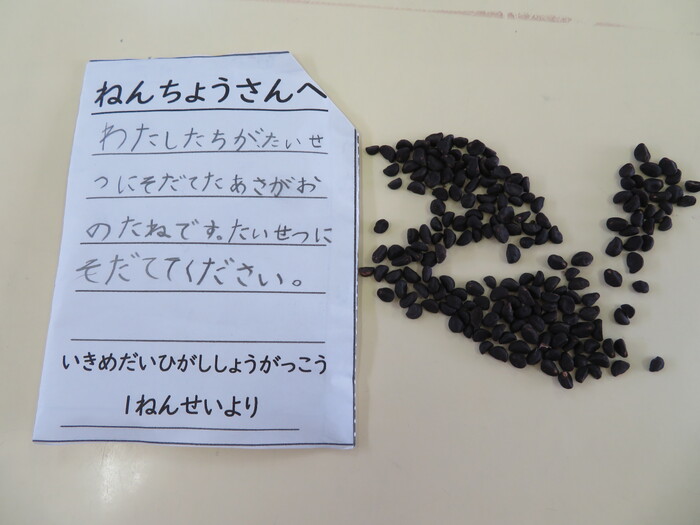 ねんちょうさんへ
わたしたちが、たいせ
つにそだてたあさがお
のたねです。たいせつに
そだててください。
いきめだいひがししょうがっこう
1ねんせいより